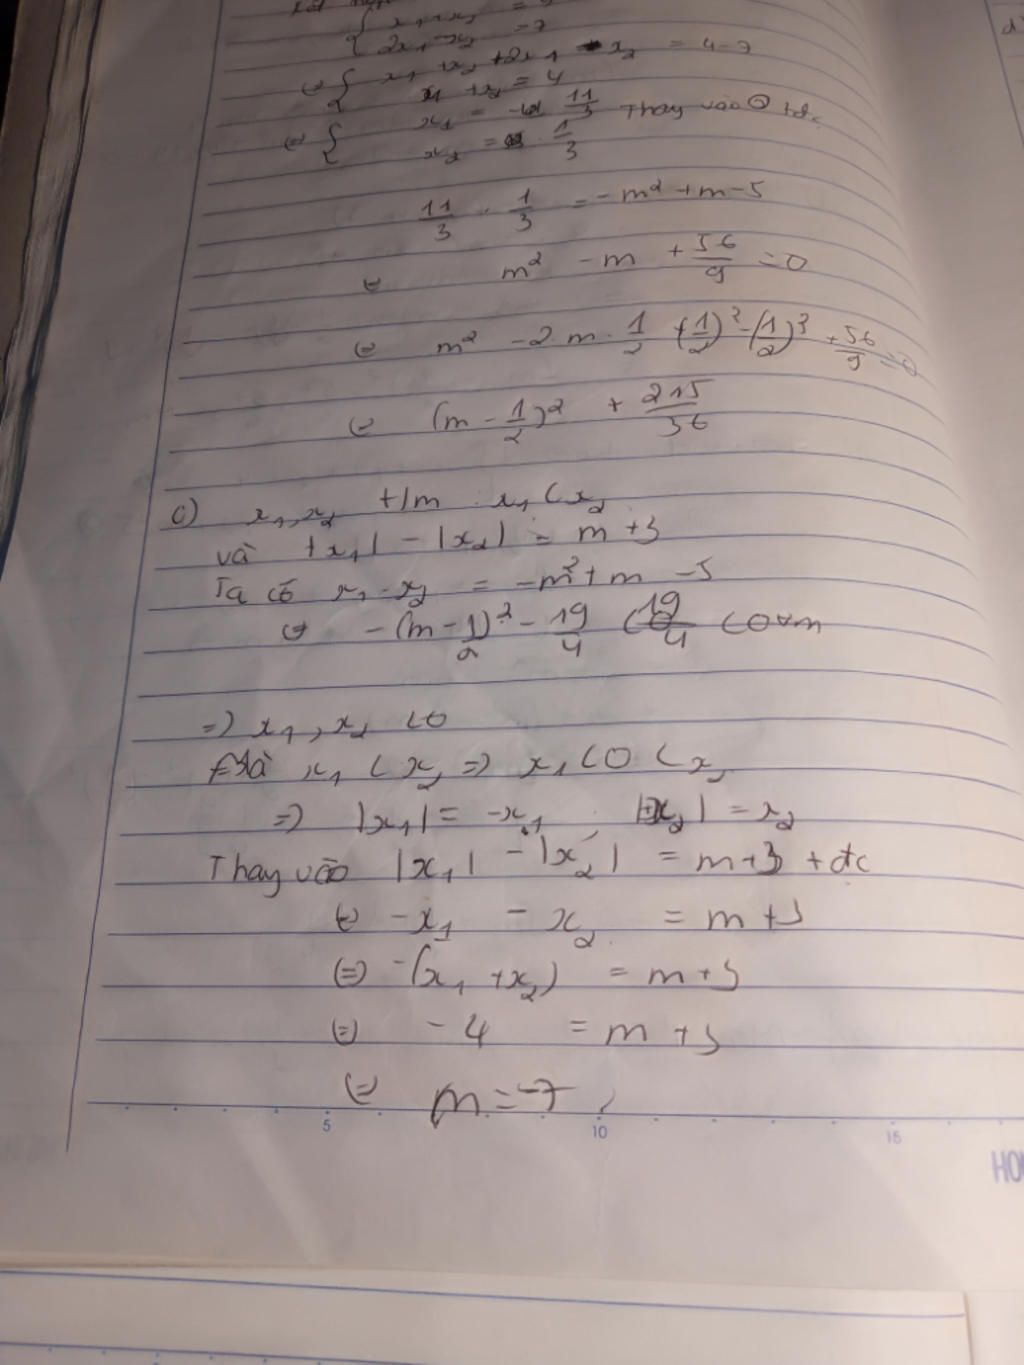 { 2x₁ - x₂ = -7
⇔ { x₁ + x₂ + 2x₁ - x₂ = 4-7
x₁ + x₂ = 4
⇔ { x₁ = 11/3 Thay vào ② tđc
x₂ = 1/3
11/3 . 1/3 = -m² + m - 5
⇔ m² - m + 56/9 = 0
⇔ m² - 2.m.1/2 + (1/2)² - (1/2)² + 56/9 = 0
⇔ (m - 1/2)² + 215/36
c) x₁, x₂ t/m x₁ < x₂
và |x₁| - |x₂| = m + 3
Ta có x₁ . x₂ = -m² + m - 5
⇔ -(m - 1/2)² - 19/4 < 19/4 < 0 ∀m
=> x₁, x₂ < 0
Mà x₁ < x₂ => x₁ < 0 < x₂
=> |x₁| = -x₁ ; |x₂| = x₂
Thay vào |x₁| - |x₂| = m+3 + đc
⇔ -x₁ - x₂ = m + 3
⇔ -(x₁ + x₂) = m + 3
⇔ -4 = m + 3
⇔ m = -7
5 10 15